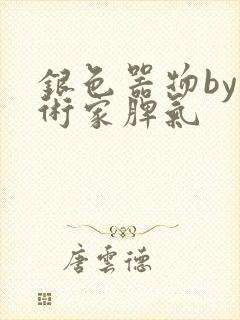 銀色器物by
術家脾氣
唐雲德